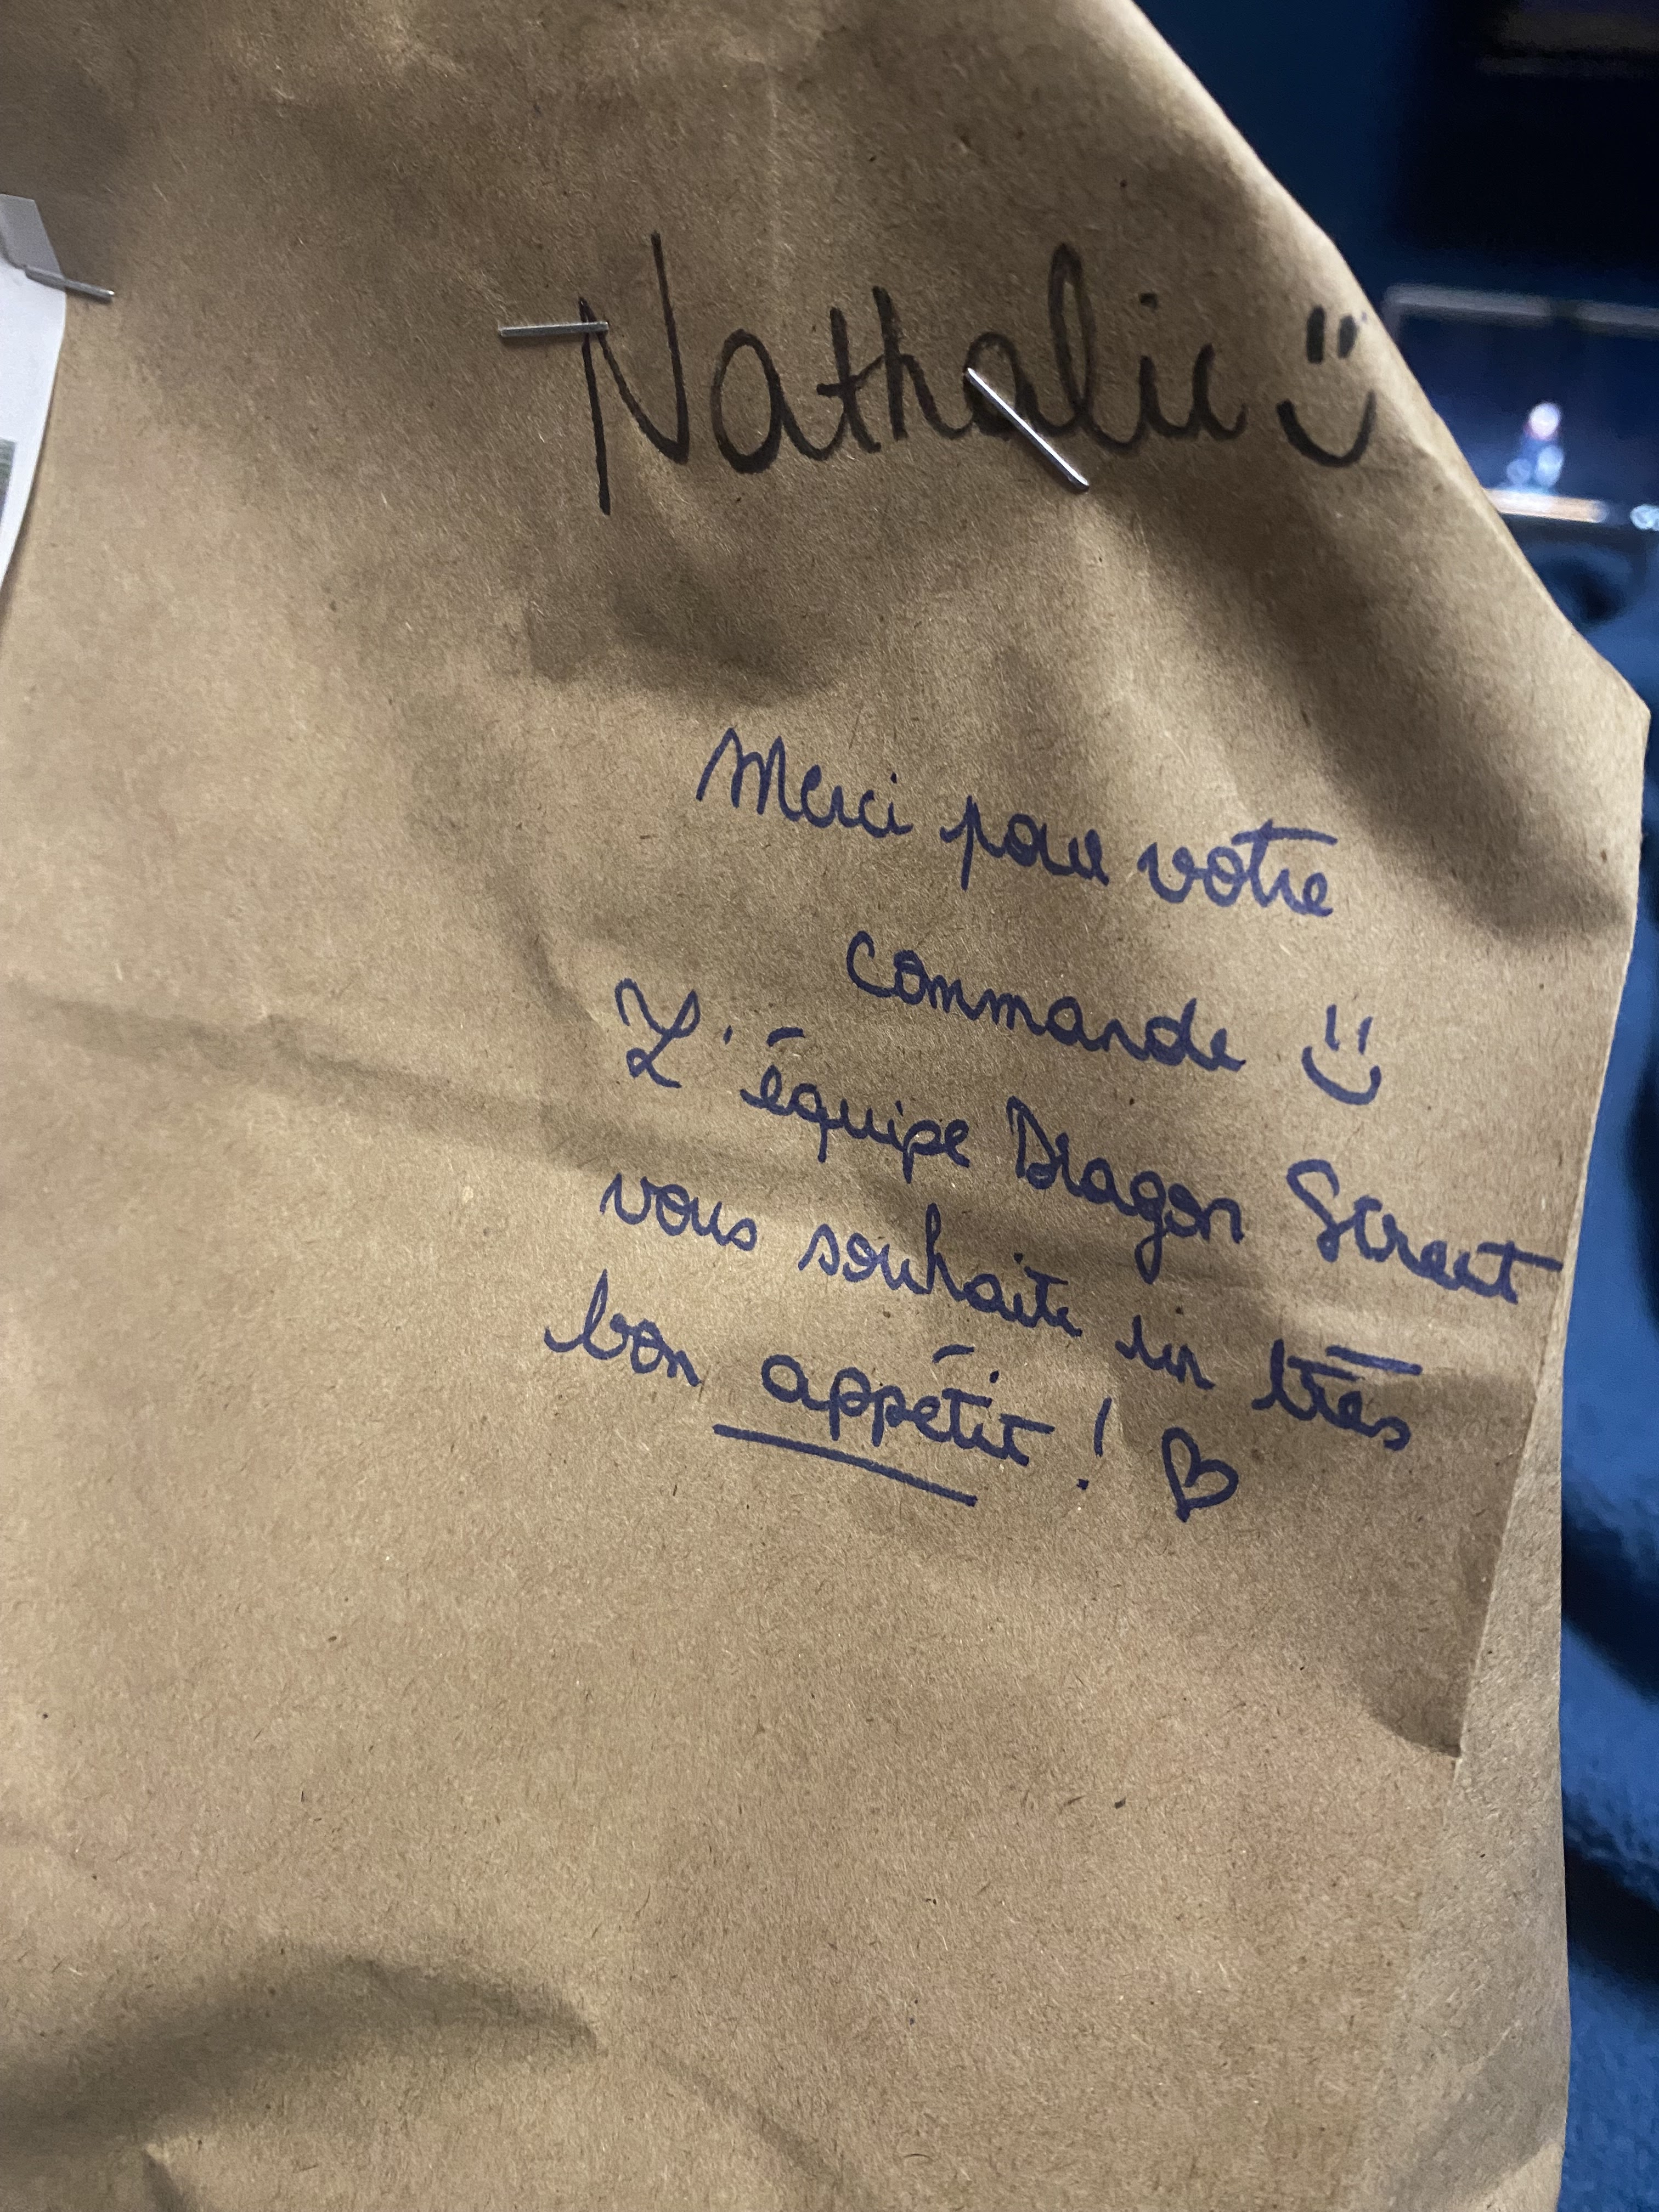 Nathalie
Merci pour votre
commande
L'équipe Dragon Street
vous souhaite un très
bon appétit ! ♡